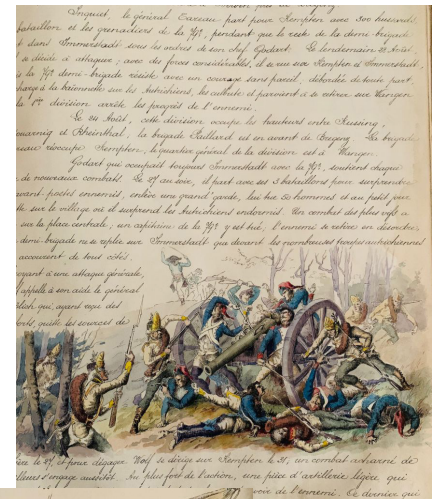 Inquiet, le général Tareau part pour Kempten avec 300 hussards,
bataillon et les grenadiers de la 79e, pendant que le reste de la demi-brigade
dans Immerstadt sous les ordres de son chef Godart. Le lendemain 22 Août,
se décide à attaquer; avec des forces considérables, il se rue sur Kempten et Immerstadt,
la 79e demi-brigade résiste avec un courage sans pareil, débordée de toute part,
charge à la baïonnette sur les Autrichiens, les culbute et parvient à se retirer sur Wangen
la 1ère division arrête les progrès de l'ennemi.
Le 24 Août, cette division occupe les hauteurs entre
et Rheinthal, la brigade Paillard est en avant de Bregenz. La brigade
réoccupe Kempten, le quartier général de la division est à Wangen.
Godart qui occupait toujours Immerstadt avec la 79e, soutient chaque
de nouveaux combats. Le 27 au soir, il part avec ses 3 bataillons pour surprendre
avant-postes ennemis, enlève une grand'garde, lui tue 50 hommes et au petit jour
sur le village où il surprend les Autrichiens endormis. Un combat des plus vifs a
sur la place centrale, un capitaine de la 79e y est tué, l'ennemi se retire en désordre,
demi-brigade ne se replie sur Immerstadt que devant les nombreuses troupes autrichiennes
accourent de tous côtés.
à une attaque générale,
appelle à son aide le général
qui, ayant reçu des
quitte les sources de
le 27, et pour dégager Wolf se dirige sur Kempten le 31, un combat acharné de
s'engage aussitôt. Au plus fort de l'action, une pièce d'artillerie légère qui
voie de l'ennemi. Ce dernier qui